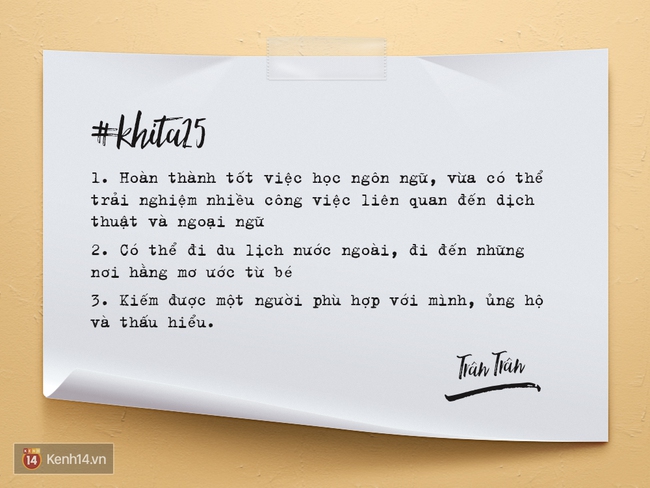 #khita25
1. Hoàn thành tốt việc học ngôn ngữ, vừa có thể
trải nghiệm nhiều công việc liên quan đến dịch
thuật và ngoại ngữ
2. Có thể đi du lịch nước ngoài, đi đến những
nơi hằng mơ ước từ bé
3. Kiếm được một người phù hợp với mình, ủng hộ
và thấu hiểu.
Trân Trân
14 Kenh14.vn